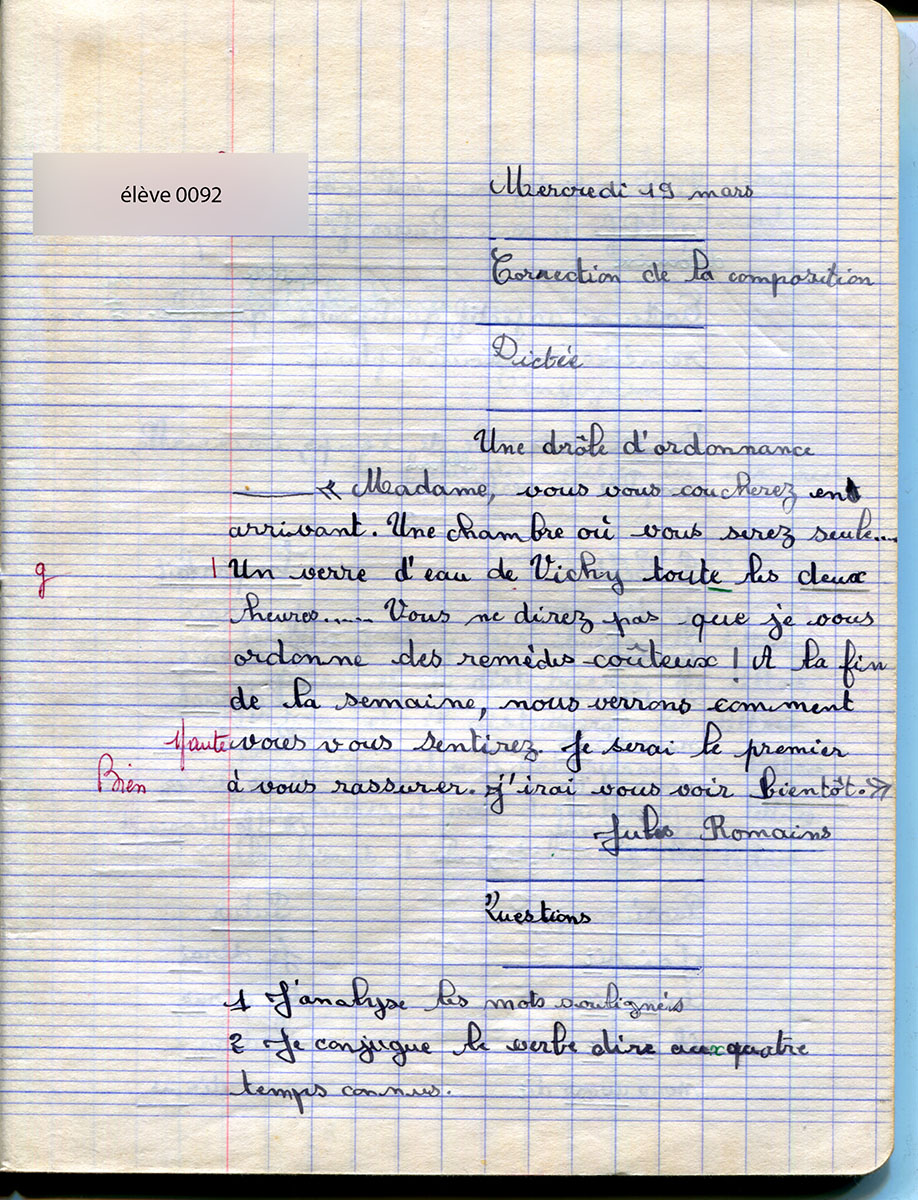 élève 0092
Mercredi 19 mars
Correction de la composition
Dictée
Une drôle d'ordonnance
« Madame, vous vous coucherez en
arrivant. Une chambre où vous serez seule...
g | Un verre d'eau de Vichy toute les deux
heures..... Vous ne direz pas que je vous
ordonne des remèdes coûteux ! A la fin
de la semaine, nous verrons comment
1 faute vous vous sentirez. Je serai le premier
Bien à vous rassurer. j'irai vous voir bientôt. »
Jules Romains
Questions
1 J'analyse les mots soulignés
2 Je conjugue le verbe dire aux quatre
temps connus.